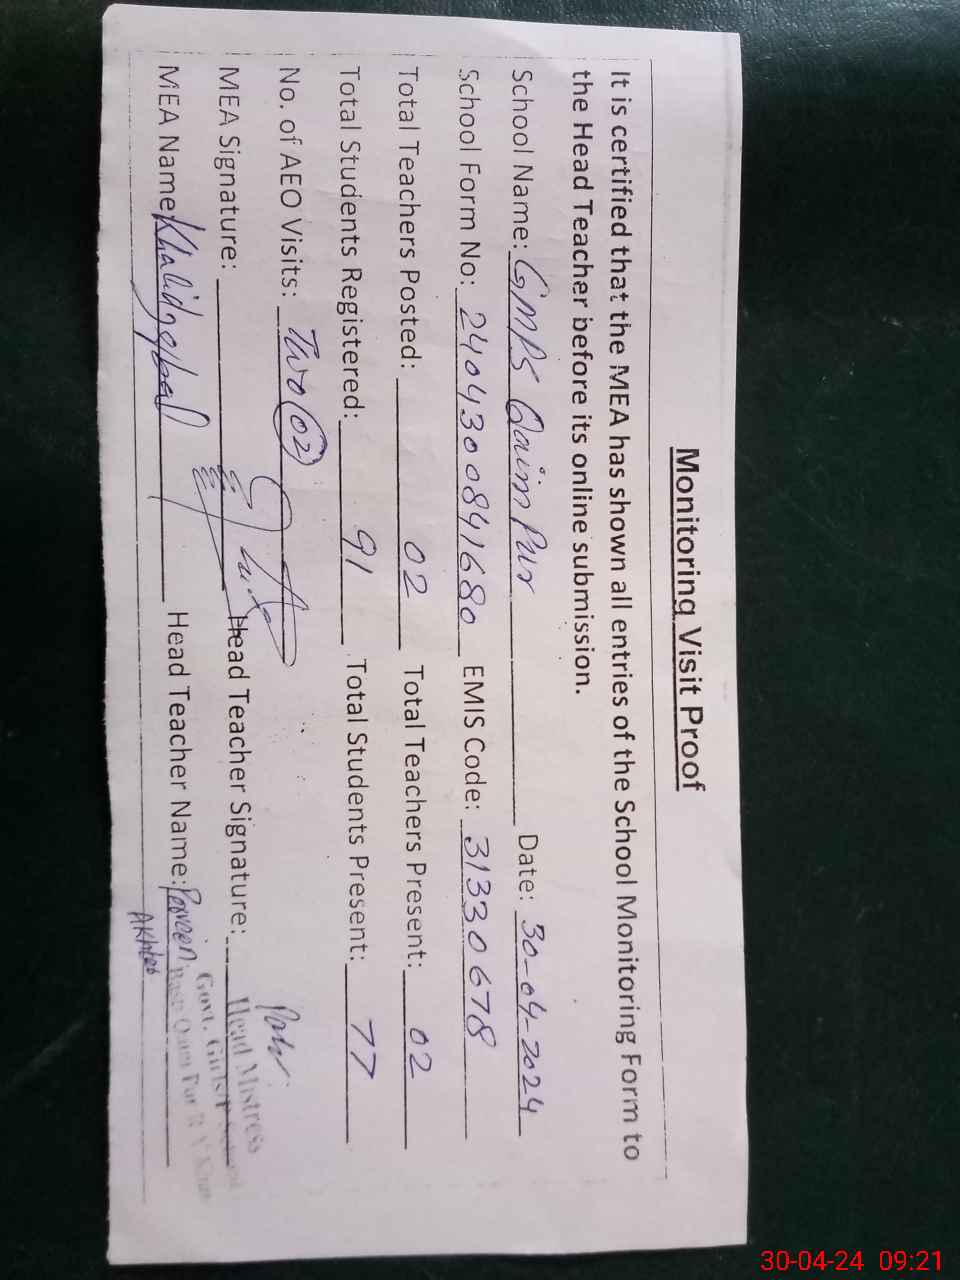 Monitoring Visit Proof
It is certified that the MEA has shown all entries of the School Monitoring Form to
the Head Teacher before its online submission.
School Name: GMPS Qaim Pur Date: 30-04-2024
School Form No: 2404300841680 EMIS Code: 31330678
Total Teachers Posted: 02 Total Teachers Present: 02
Total Students Registered: 91 Total Students Present: 77
No. of AEO Visits: Two (02)
MEA Signature: Head Teacher Signature:
Head Mistress
MEA Name: Khalid Iqbal Head Teacher Name: Parveen
Akhtar
Govt. Girls
30-04-24 09:21